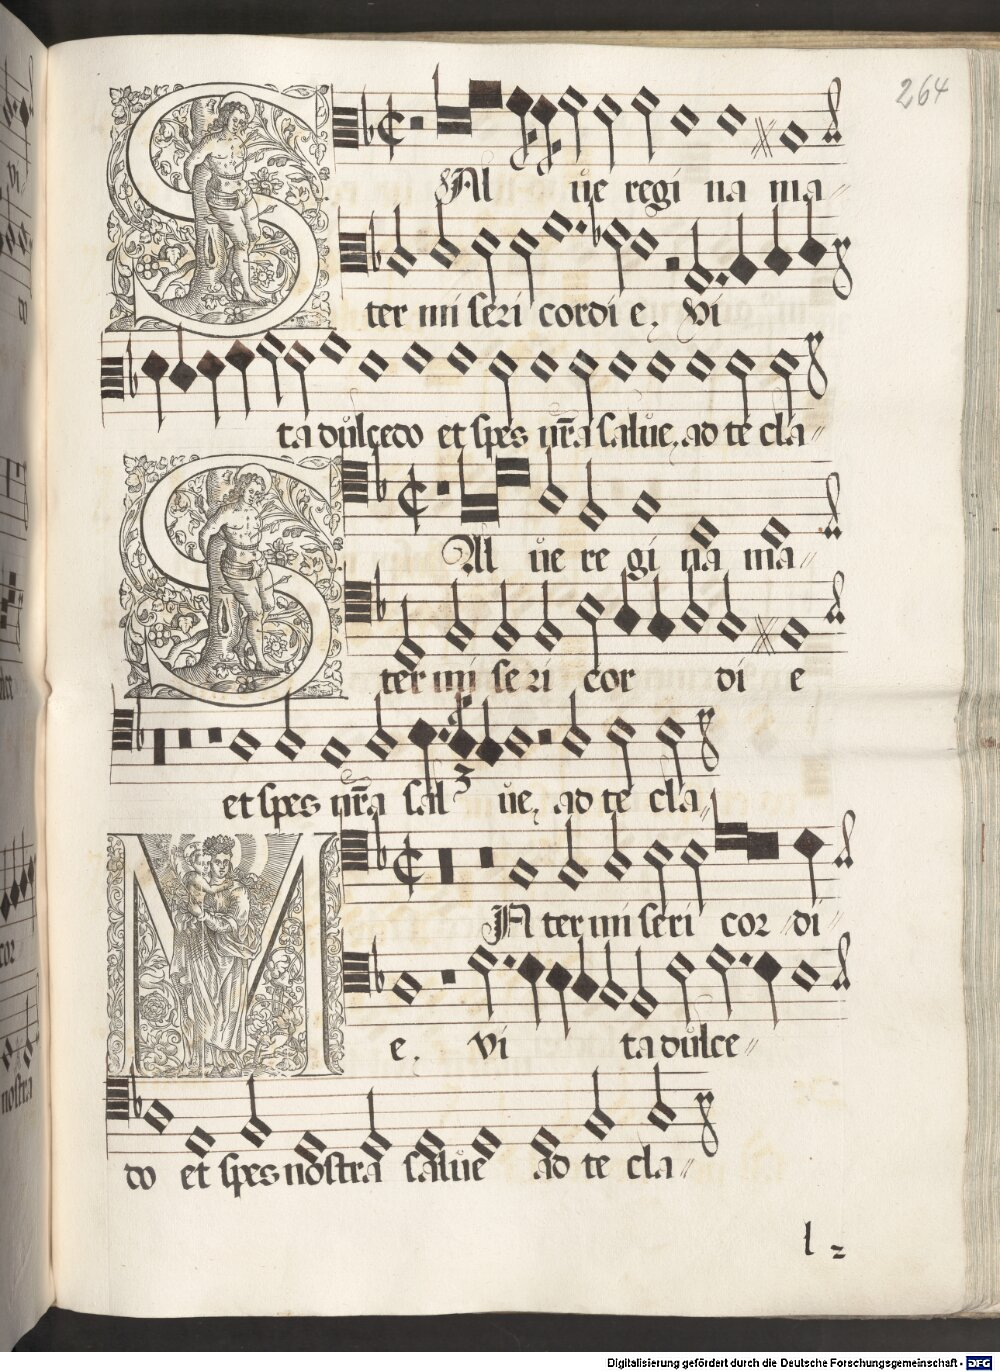 264
SAl ue regi na ma
ter mi seri cordi e. Vi
ta dulcedo et spes nr̃a salue, ad te cla
SAl ue re gi na ma
ter mi se ri cor di e
et spes nr̃a sal ue, ad te cla
3
MA ter mi seri cor di
e. Vi ta dulce
do et spes nostra salue ad te cla
l
vi
do
cor
nostra
Digitalisierung gefördert durch die Deutsche Forschungsgemeinschaft - DFG